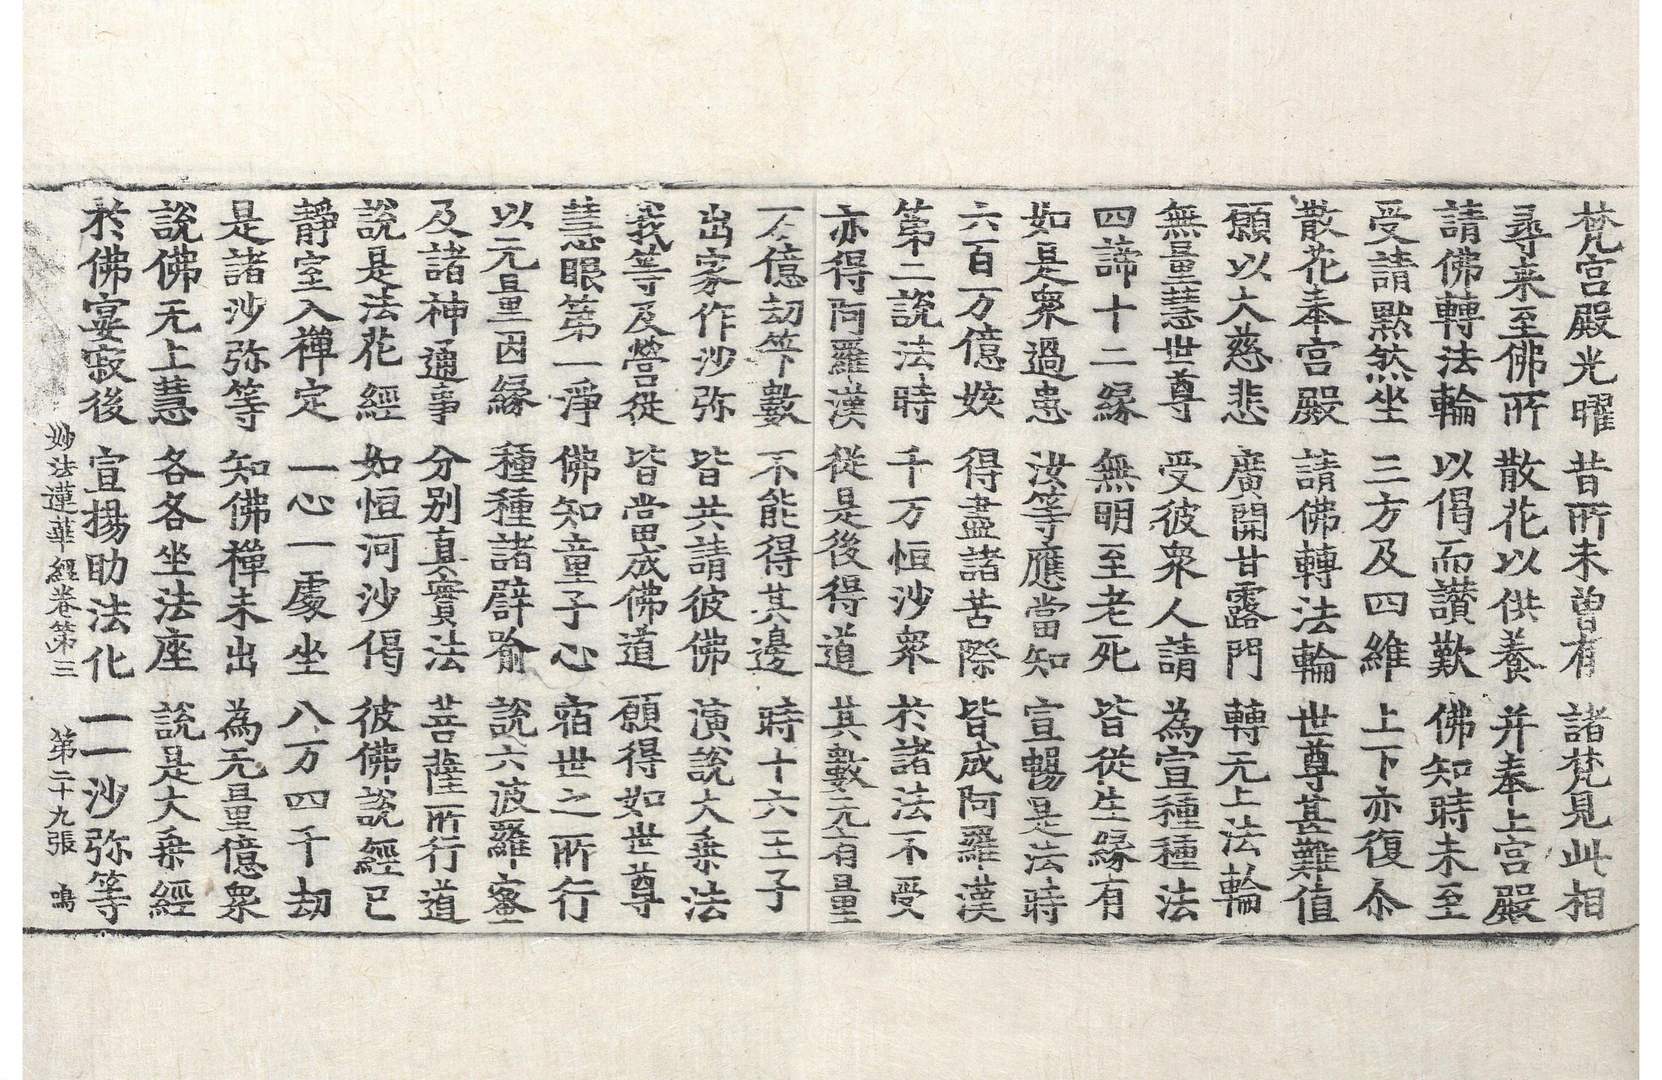 梵宮殿光曜　昔所未曾有　諸梵見此相
尋来至佛所　散花以供養　并奉上宮殿
請佛轉法輪　以偈而讃歎　佛知時未至
受請黙然坐　三方及四維　上下亦復尒
散花奉宮殿　請佛轉法輪　世尊甚難值
願以大慈悲　廣開甘露門　轉无上法輪
無量慧世尊　受彼衆人請　為宣種種法
四諦十二緣　無明至老死　皆從生緣有
如是衆過患　汝等應當知　宣暢是法時
六百万億姟　得盡諸苦際　皆成阿羅漢
第二說法時　千万恒沙衆　於諸法不受
亦得阿羅漢　從是後得道　其數无有量
万億劫筭數　不能得其邊　時十六王子
出家作沙弥　皆共請彼佛　演說大乗法
我等及營從　皆當成佛道　願得如世尊
慧眼第一淨　佛知童子心　宿世之所行
以无量因緣　種種諸譬喻　說六波羅蜜
及諸神通事　分別真實法　菩薩所行道
說是法花經　如恒河沙偈　彼佛說經已
靜室入禪定　一心一處坐　八万四千劫
是諸沙弥等　知佛禪未出　為无量億衆
說佛无上慧　各各坐法座　說是大乗經
於佛宴寂後　宣揚助法化　一一沙弥等
妙法蓮華經卷第三　第二十九張　鳴